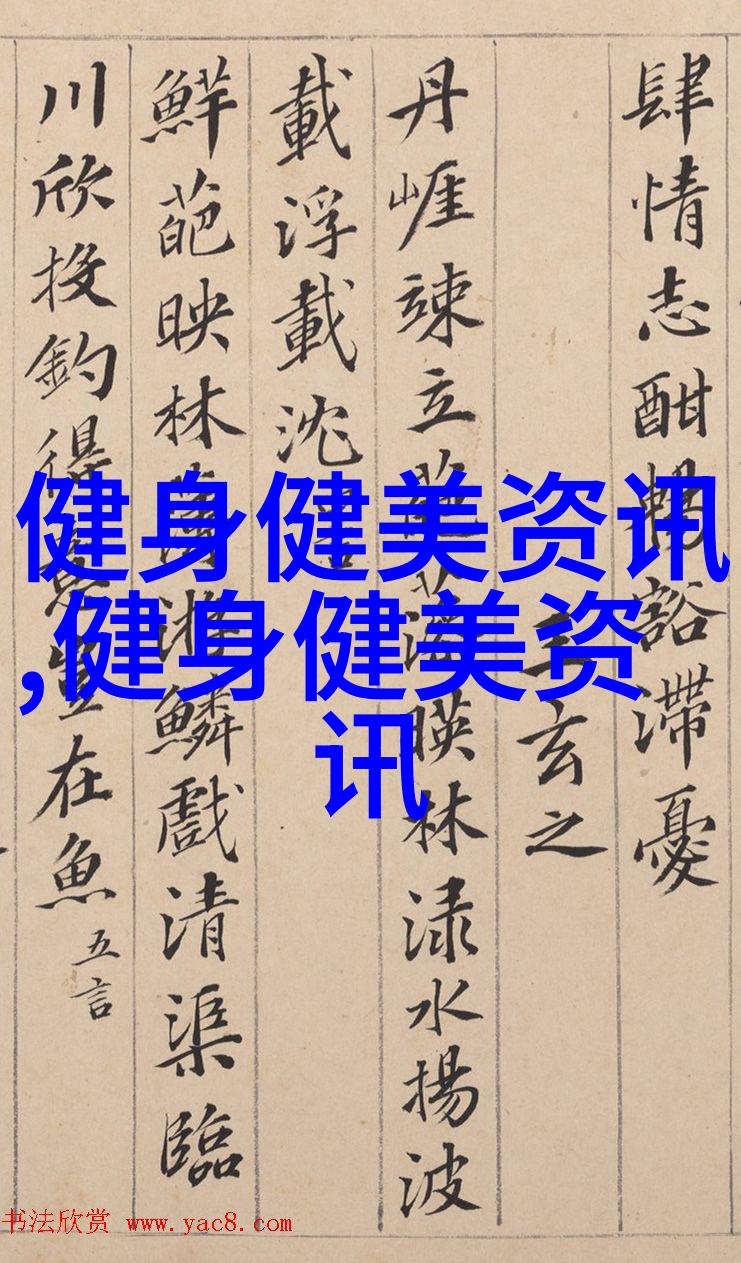 肆情志酣暢豁滯憂
王玄之
丹崕竦立葩藻暎林渌水揚波
載浮載沈
鮮葩映林薄游鱗戲清渠臨
川欣投釣得意豈在魚 五言
健身健美资讯
,健身健美资
讯
书法欣赏 www.yac8.com